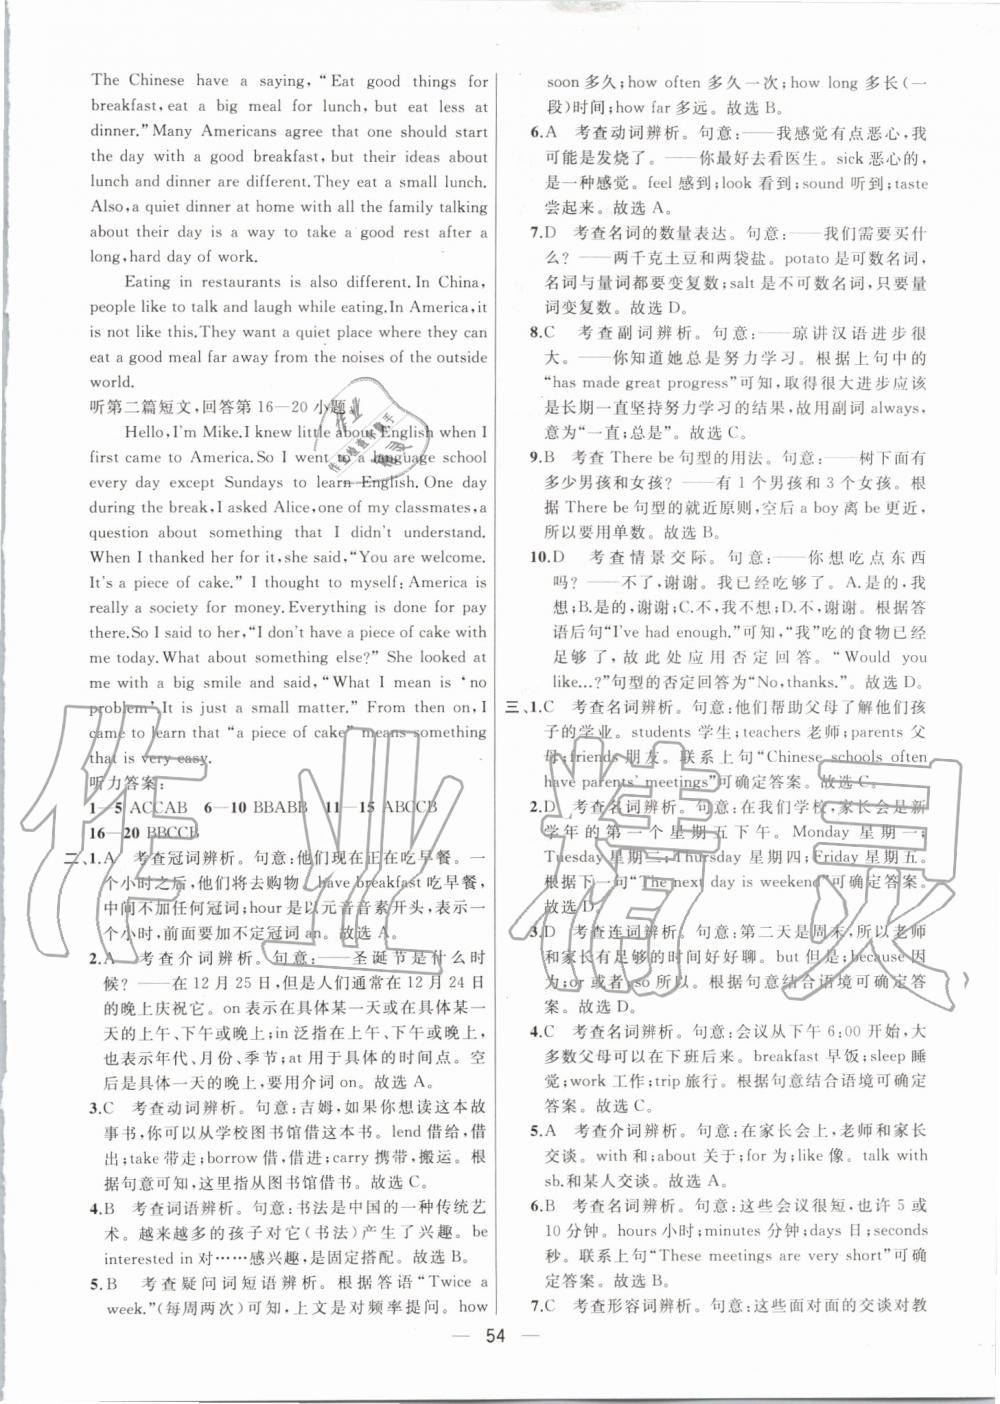 The Chinese have a saying, “Eat good things for
breakfast, eat a big meal for lunch, but eat less at
dinner.” Many Americans agree that one should start
the day with a good breakfast, but their ideas about
lunch and dinner are different. They eat a small lunch.
Also, a quiet dinner at home with all the family talking
about their day is a way to take a good rest after a
long, hard day of work.
Eating in restaurants is also different. In China,
people like to talk and laugh while eating. In America, it
is not like this. They want a quiet place where they can
eat a good meal far away from the noises of the outside
world.
听第二篇短文,回答第 16—20 小题。
Hello, I'm Mike. I knew little about English when I
first came to America. So I went to a language school
every day except Sundays to learn English. One day
during the break, I asked Alice, one of my classmates, a
question about something that I didn't understand.
When I thanked her for it, she said, “You are welcome.
It's a piece of cake.” I thought to myself: America is
really a society for money. Everything is done for pay
there. So I said to her, “I don't have a piece of cake with
me today. What about something else?” She looked at
me with a big smile and said, “What I mean is ‘no
problem’. It is just a small matter.” From then on, I
came to learn that “a piece of cake” means something
that is very easy.
听力答案:
1—5 ACCAB 6—10 BBABB 11—15 ABCCB
16—20 BBCCB
二、1.A 考查冠词辨析。句意:他们现在正在吃早餐。一
个小时之后,他们将去购物。have breakfast 吃早餐,
中间不加任何冠词;hour 是以元音音素开头,表示一
个小时,前面要加不定冠词 an。故选 A。
2.A 考查介词辨析。句意:——圣诞节是什么时
候? ——在 12 月 25 日,但是人们通常在 12 月 24 日
的晚上庆祝它。on 表示在具体某一天或在具体某一
天的上午、下午或晚上;in 泛指在上午、下午或晚上,
也表示年代、月份、季节;at 用于具体的时间点。空
后是具体一天的晚上,要用介词 on。故选 A。
3.C 考查动词辨析。句意:吉姆,如果你想读这本故
事书,你可以从学校图书馆借这本书。lend 借给,借
出;take 带走;borrow 借,借进;carry 携带,搬运。根
据句意可知,这里指从图书馆借。故选 C。
4.B 考查词语辨析。句意:书法是中国的一种传统艺
术。越来越多的孩子对它(书法)产生了兴趣。be
interested in 对……感兴趣,是固定搭配。故选 B。
5.B 考查疑问词短语辨析。根据答语“Twice a
week.”(每周两次)可知,上文是对频率提问。how
soon 多久;how often 多久一次;how long 多长(一
段)时间;how far 多远。故选 B。
6.A 考查动词辨析。句意:——我感觉有点恶心,我
可能是发烧了。——你最好去看医生。sick 恶心的,
是一种感觉。feel 感到;look 看到;sound 听到;taste
尝起来。故选 A。
7.D 考查名词的数量表达。句意:——我们需要买什
么? ——两千克土豆和两袋盐。potato 是可数名词,
名词与量词都要变复数;salt 是不可数名词,只用量
词变复数。故选 D。
8.C 考查副词辨析。句意:——琼讲汉语进步很
大。——你知道她总是努力学习。根据上句中的
“has made great progress”可知,取得很大进步应该
是长期一直坚持努力学习的结果,故用副词 always,
意为“一直;总是”。故选 C。
9.B 考查 There be 句型的用法。句意:——树下面有
多少男孩和女孩? ——有 1 个男孩和 3 个女孩。根
据 There be 句型的就近原则,空后 a boy 离 be 更近,
所以要用单数。故选 B。
10.D 考查情景交际。句意:——你想吃点东西
吗? ——不了,谢谢。我已经吃够了。A.是的,我
想;B.是的,谢谢;C.不,我不想;D.不,谢谢。根据答
语后句“I've had enough.”可知,“我”吃的食物已经
足够了,故此处应用否定回答。“Would you
like...?”句型的否定回答为“No, thanks.”。故选 D。
三、1.C 考查名词辨析。句意:他们帮助父母了解他们孩
子的学业。students 学生;teachers 老师;parents 父
母;friends 朋友。联系上句“Chinese schools often
have parents' meetings”可确定答案。故选 C。
2.D 考查名词辨析。句意:在我们学校,家长会是新
学年的第一个星期五下午。Monday 星期一;
Tuesday 星期二;Thursday 星期四;Friday 星期五。
根据下一句“The next day is weekend”可确定答案。
故选 D。
3.D 考查连词辨析。句意:第二天是周末,所以老师
和家长有足够的时间好好聊。but 但是;because 因
为;or 或者;so 所以。根据句意结合语境可确定答
案。故选 D。
4.C 考查名词辨析。句意:会议从下午 6:00 开始,大
多数父母可以在下班后来。breakfast 早饭;sleep 睡
觉;work 工作;trip 旅行。根据句意结合语境可确定
答案。故选 C。
5.A 考查介词辨析。句意:在家长会上,老师和家长
交谈。with 和;about 关于;for 为;like 像。talk with
sb.和某人交谈。故选 A。
6.B 考查名词辨析。句意:这些会议很短,也许 5 或
10 分钟。hours 小时;minutes 分钟;days 日子;seconds
秒。联系上句“These meetings are very short”可确
定答案。故选 B。
7.C 考查形容词辨析。句意:这些面对面的交谈对教
— 54 —
作业精灵